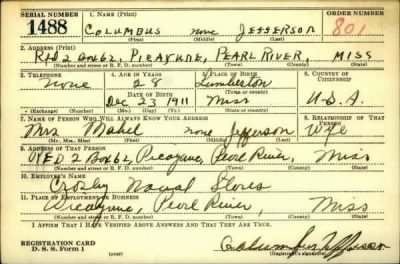 SERIAL NUMBER 1. NAME (Print) ORDER NUMBER
1488 COLUMBUS none JEFFERSON 801
(First) (Middle) (Last)
2. ADDRESS (Print)
RFD 2 Box 62, PICAYUNE, PEARL RIVER, MISS
(Number and street or R. F. D. number) (Town) (County) (State)
3. TELEPHONE 4. AGE IN YEARS 5. PLACE OF BIRTH 6. COUNTRY OF CITIZENSHIP
none 28 Lumberton
DATE OF BIRTH (Town or county)
Dec 23 1911 Miss U.S.A.
(Exchange) (Number) (Mo.) (Day) (Yr.) (State or country)
7. NAME OF PERSON WHO WILL ALWAYS KNOW YOUR ADDRESS 8. RELATIONSHIP OF THAT PERSON
Mrs Mabel none Jefferson Wife
(Mr., Mrs., Miss) (First) (Middle) (Last)
9. ADDRESS OF THAT PERSON
RFD 2 Box 62, Picayune, Pearl River, Miss
(Number and street or R. F. D. number) (Town) (County) (State)
10. EMPLOYER'S NAME
Crosby Naval Stores
11. PLACE OF EMPLOYMENT OR BUSINESS
Picayune, Pearl River, Miss
(Number and street or R. F. D. number) (Town) (County) (State)
I AFFIRM THAT I HAVE VERIFIED ABOVE ANSWERS AND THAT THEY ARE TRUE.
REGISTRATION CARD
D. S. S. Form 1 Columbus Jefferson
(Registrant's signature)